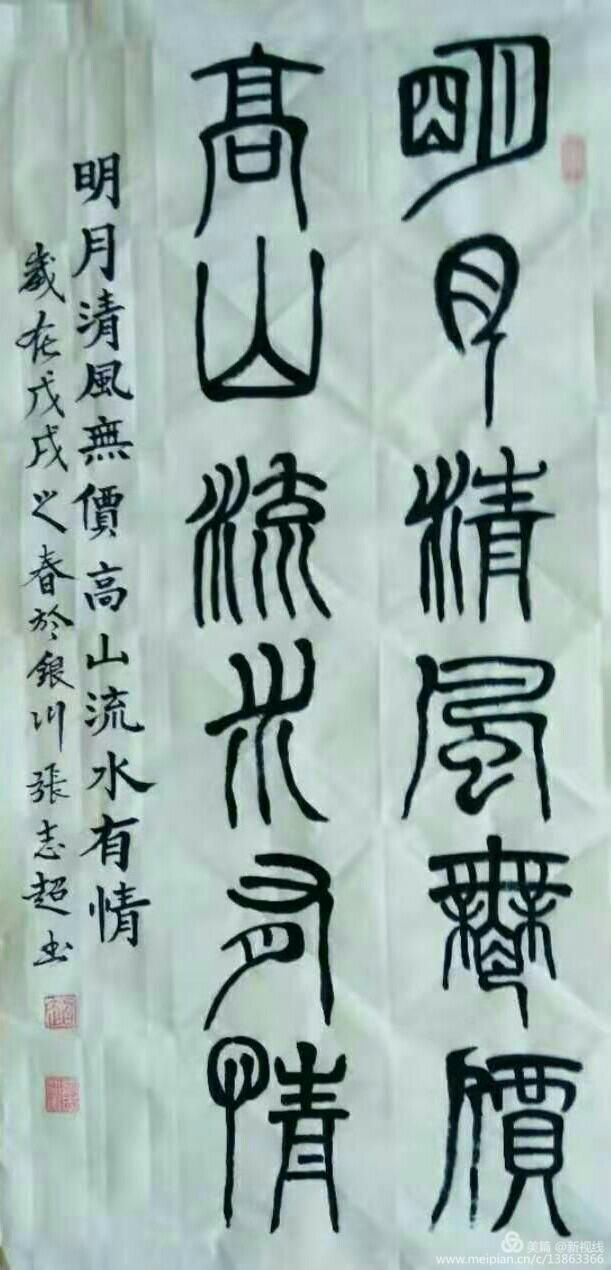 明月清風無價
高山流水有情
明月清風無價高山流水有情
歲在戊戌之春於銀川張志超书
美篇 @新视线
www.meipian.cn/c/13863366